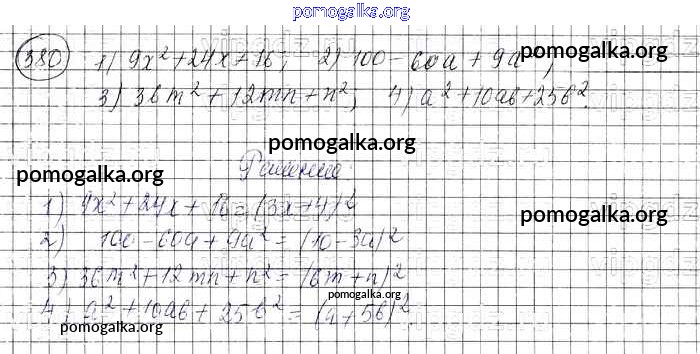 pomogalka.org
380 1) 9x² + 24x + 16; 2) 100 - 60a + 9a²; pomogalka.org
3) 36m² + 12mn + n²; 4) a² + 10ab + 25b².
pomogalka.org
pomogalka.org Решение:
1) 9x² + 24x + 16 = (3x + 4)²
pomogalka.org
2) 100 - 60a + 9a² = (10 - 3a)²
3) 36m² + 12mn + n² = (6m + n)²
pomogalka.org
4) a² + 10ab + 25b² = (a + 5b)².
pomogalka.org